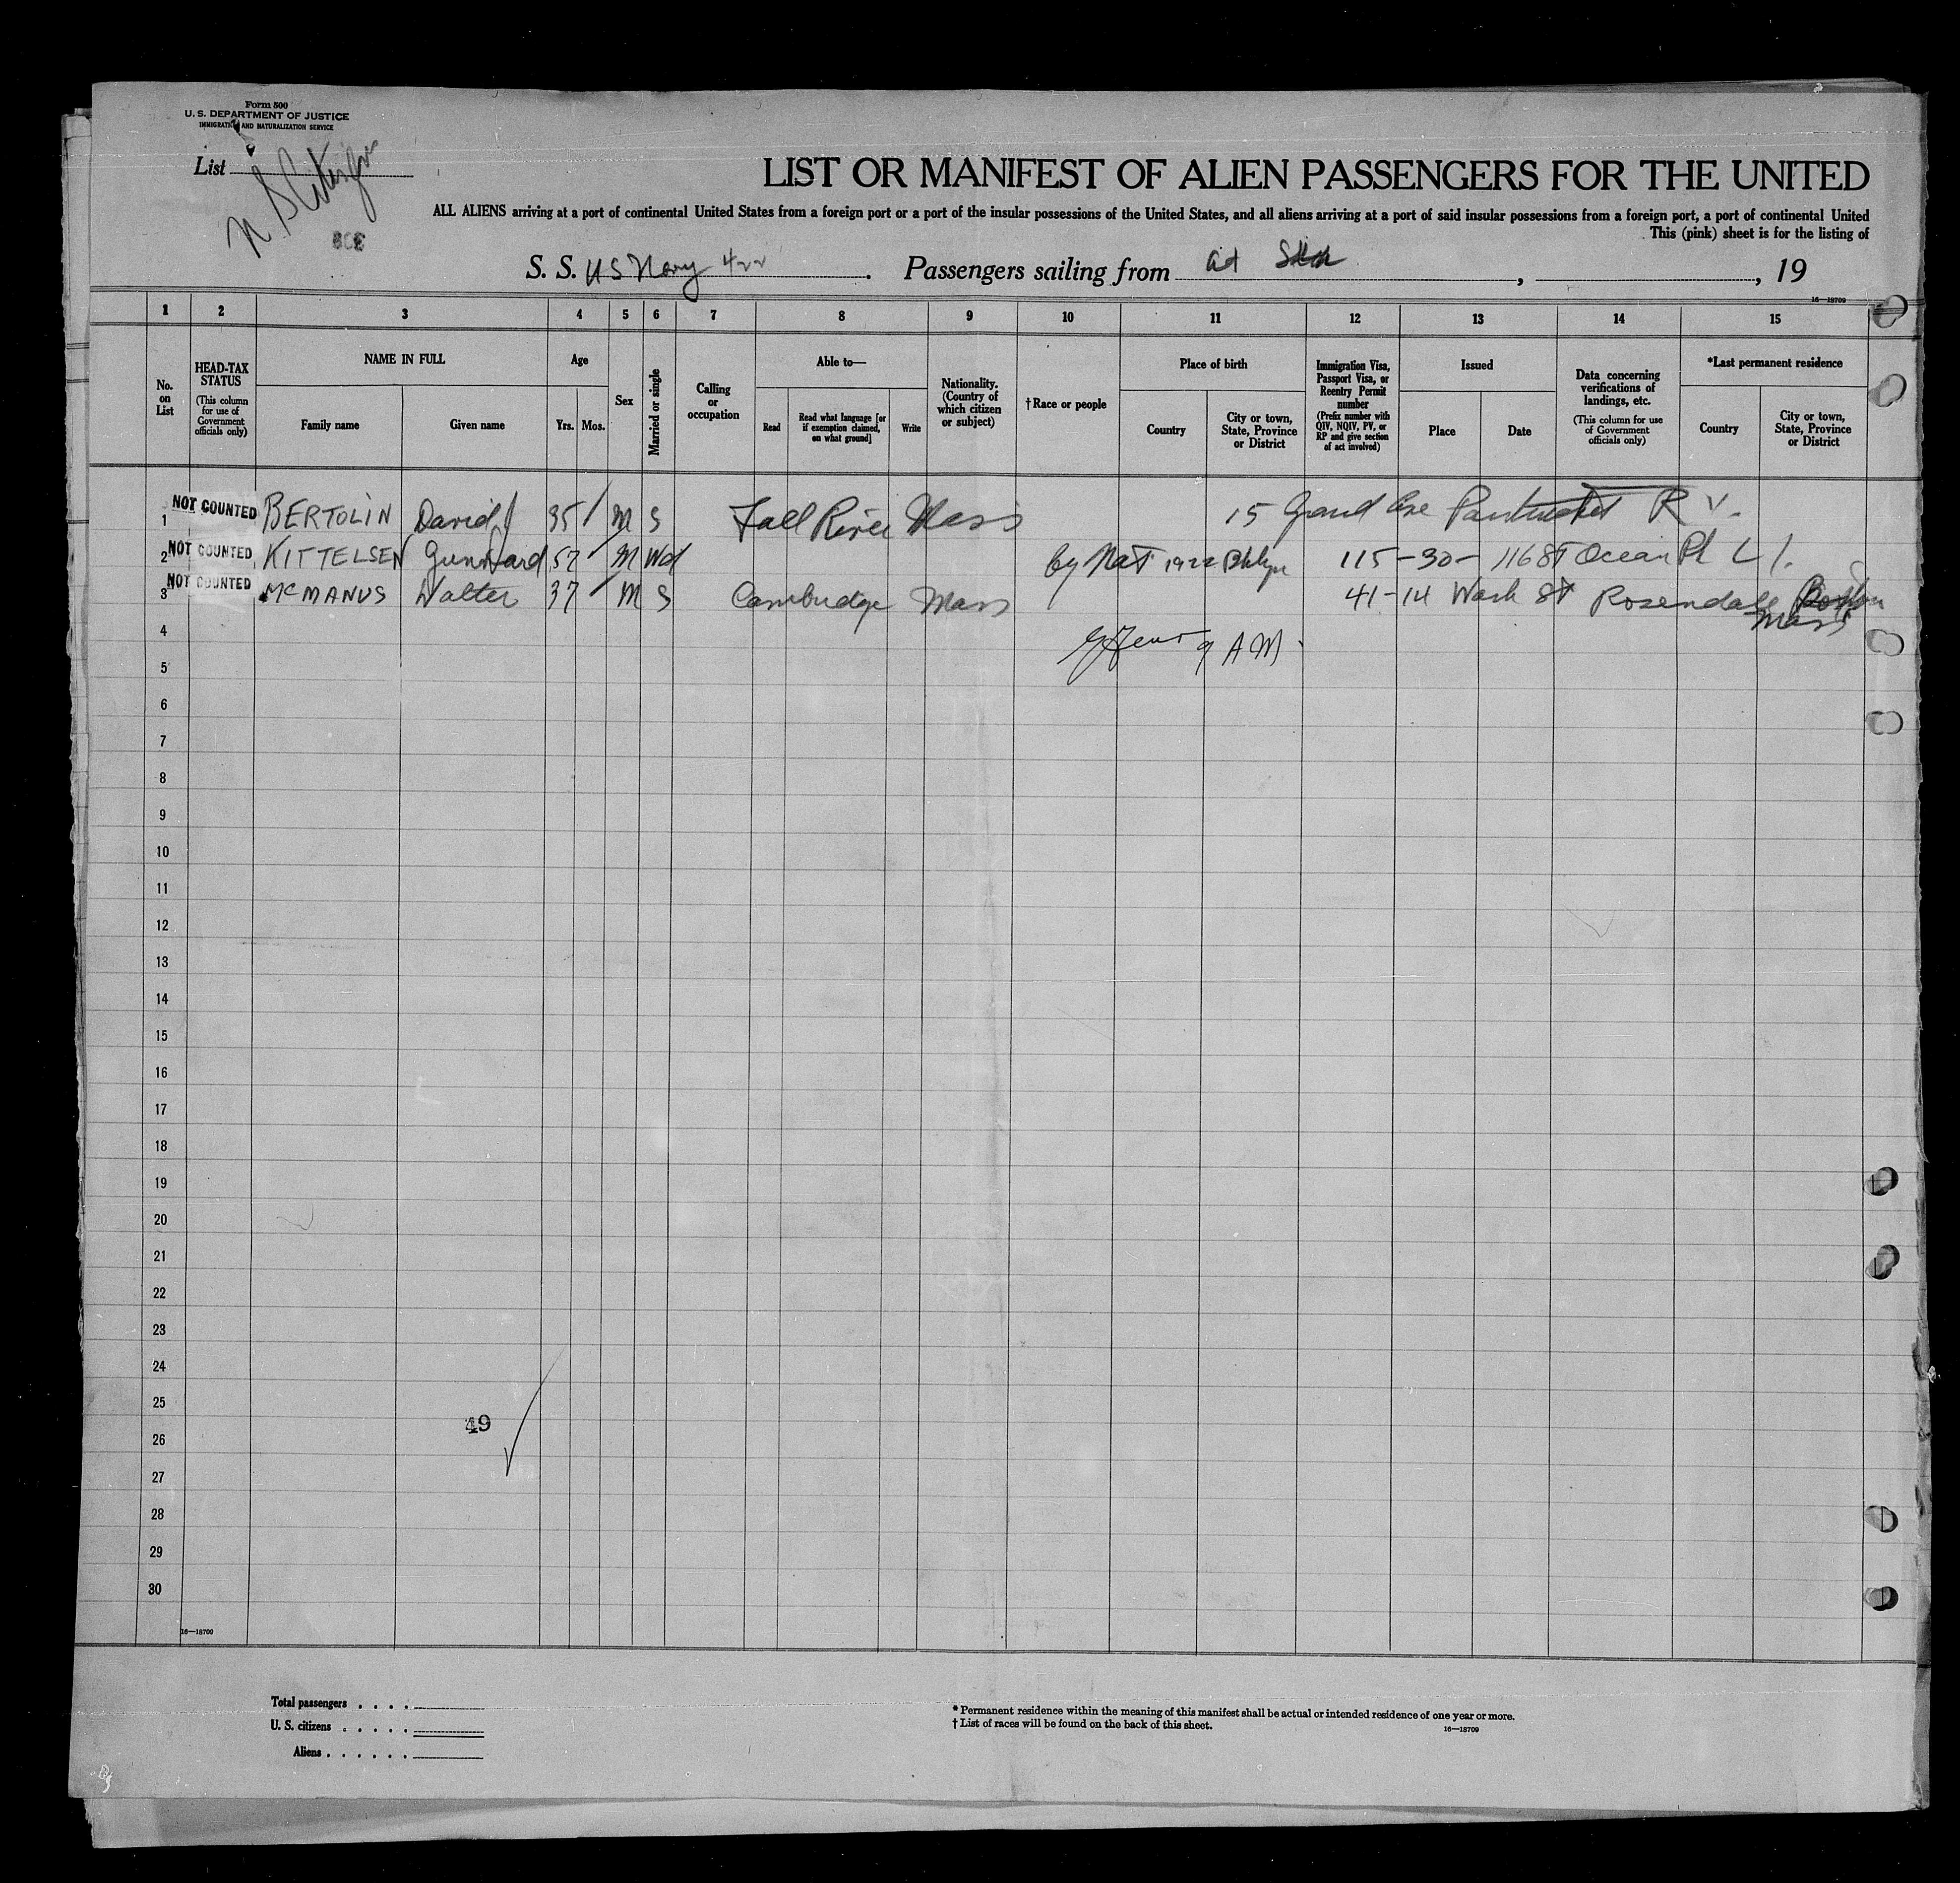 Form 500
U. S. DEPARTMENT OF JUSTICE
IMMIGRATION AND NATURALIZATION SERVICE
List
LIST OR MANIFEST OF ALIEN PASSENGERS FOR THE UNITED
ALL ALIENS arriving at a port of continental United States from a foreign port or a port of the insular possessions of the United States, and all aliens arriving at a port of said insular possessions from a foreign port, a port of continental United
This (pink) sheet is for the listing of
S. S. US Navy 422 . Passengers sailing from at Sea , , 19
16—18709
1 2 3 4 5 6 7 8 9 10 11 12 13 14 15
No. on List
HEAD-TAX STATUS (This column for use of Government officials only)
NAME IN FULL
Family name
Given name
Age
Yrs. Mos.
Sex
Married or single
Calling or occupation
Able to—
Read
Read what language [or if exemption claimed, on what ground]
Write
Nationality. (Country of which citizen or subject)
†Race or people
Place of birth
Country
City or town, State, Province or District
Immigration Visa, Passport Visa, or Reentry Permit number (Prefix number with QIV, NQIV, PV, or RP and give section of act involved)
Issued
Place
Date
Data concerning verifications of landings, etc. (This column for use of Government officials only)
*Last permanent residence
Country
City or town, State, Province or District
1 NOT COUNTED BERTOLIN David J 35 M S Fall River Mass 15 Grand Ave Pawtucket R
2 NOT COUNTED KITTELSEN 57 M Wd by Nat 1922 Bklyn 115-30- 116 St Ocean Pk L I.
3 NOT COUNTED MCMANUS Walter 37 M S Cambridge Mass 41-14 Wash St Rosendale Boston Mass
4
9 AM
5
6
7
8
9
10
11
12
13
14
15
16
17
18
19
20
21
22
23
24
25
49
26
27
28
29
30
16—18709
Total passengers . . . .
U. S. citizens . . . . .
Aliens . . . . . .
* Permanent residence within the meaning of this manifest shall be actual or intended residence of one year or more.
† List of races will be found on the back of this sheet.
16—18709